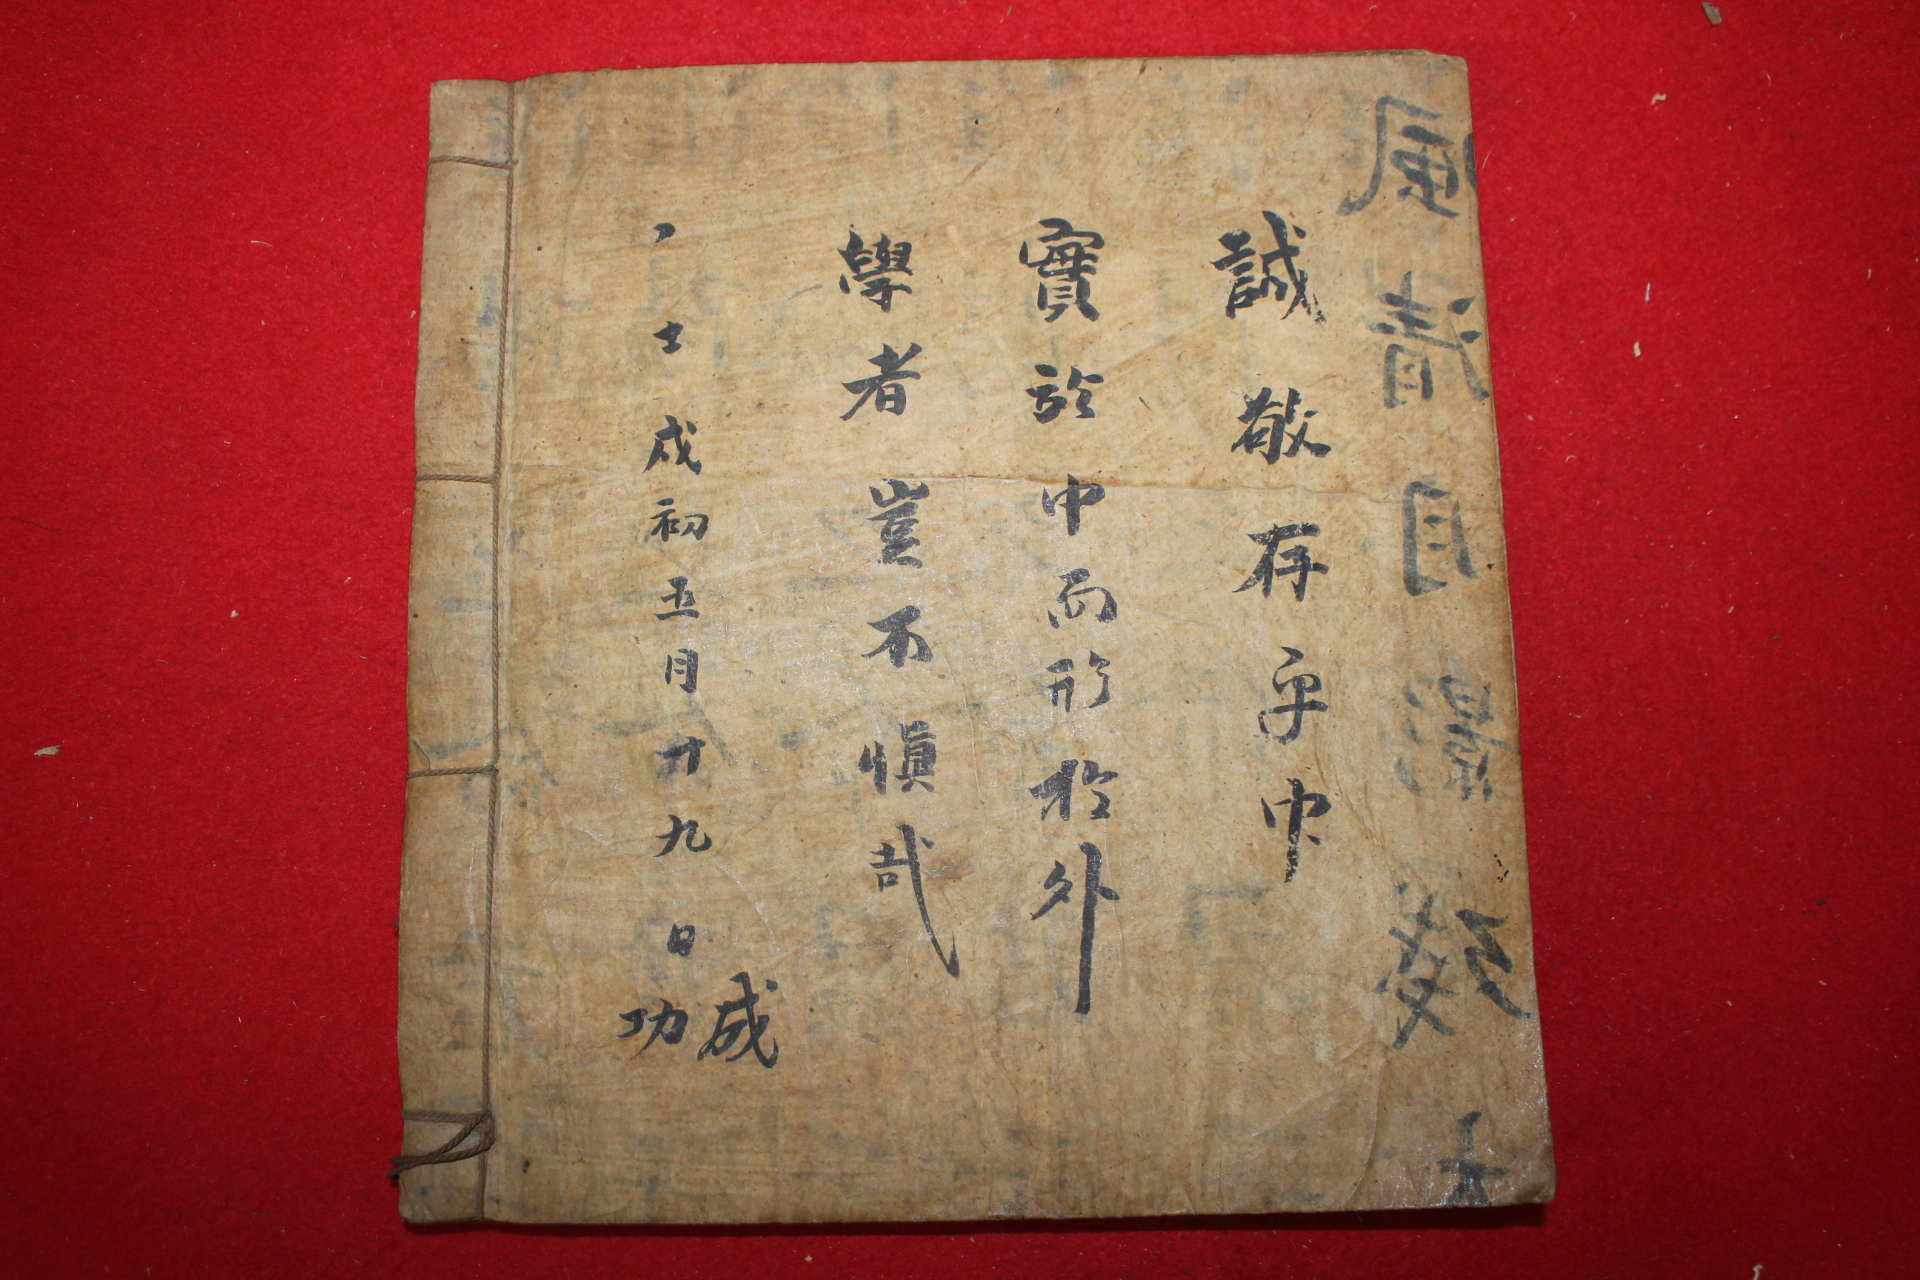 風清月影
誠敬存乎中
實於中而形於外
學者豈不愼哉
壬戌初五月十九日
成功